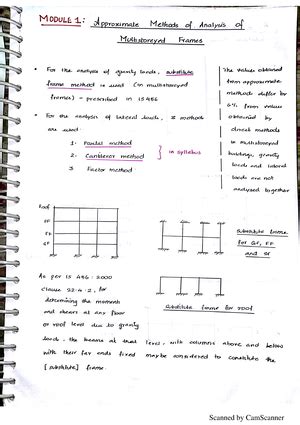 MODULE 1: Approximate Methods of Analysis of
Multistoreyed Frames
• For the analysis of gravity loads, substitute
frame method is used (in multistoreyed
frames) - prescribed in IS 456
• For the analysis of lateral loads, 3 methods
are used:
1. Portal method
2. Cantilever method
} in syllabus
3 Factor method
The values obtained
from approximate
methods differ by
6% from values
obtained by
clinali methods
In multistoreyed
buildings, gravity
loads and lateral
loads are not
analysed together
Roof
SF
FF
GF
Substitute frame
for GF, FF
and SF
substitute frame for roof
As per IS 456 : 2000
Clause 22.4.2, for
determining the moment
and shears at any floor
or roof level due to gravity
loads, the beams at that level, with columns above and below
with their far ends fixed maybe considered to constitute the
[substitute] frame.
Scanned by CamScanner